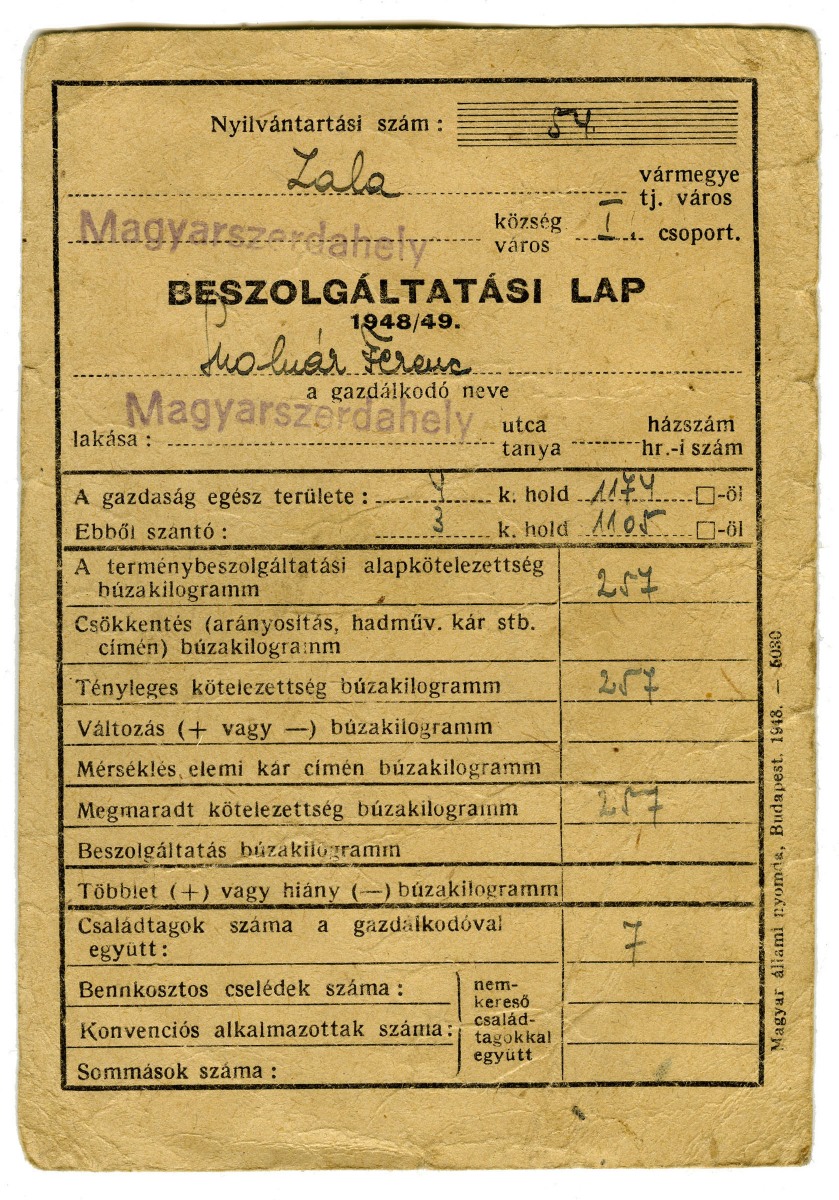 Nyilvántartási szám : 54.
Zala vármegye
tj. város
Magyarszerdahely község I. csoport.
város
BESZOLGÁLTATÁSI LAP
1948/49.
Molnár Ferenc
a gazdálkodó neve
Magyarszerdahely
lakása : utca házszám
tanya hr.-i szám
A gazdaság egész területe : 4 k. hold 1174 □-öl
Ebből szántó : 3 k. hold 1105 □-öl
A terménybeszolgáltatási alapkötelezettség
búzakilogramm 257
Csökkentés (arányosítás, hadműv. kár stb.
címén) búzakilogramm
Tényleges kötelezettség búzakilogramm 257
Változás (+ vagy —) búzakilogramm
Mérséklés elemi kár címén búzakilogramm
Megmaradt kötelezettség búzakilogramm 257
Beszolgáltatás búzakilogramm
Többlet (+) vagy hiány (—) búzakilogramm
Családtagok száma a gazdálkodóval
együtt : 7
Bennkosztos cselédek száma :
Konvenciós alkalmazottak száma :
Sommások száma :
nem-
kereső
család-
tagokkal
együtt
Magyar állami nyomda, Budapest. 1948. — 5080